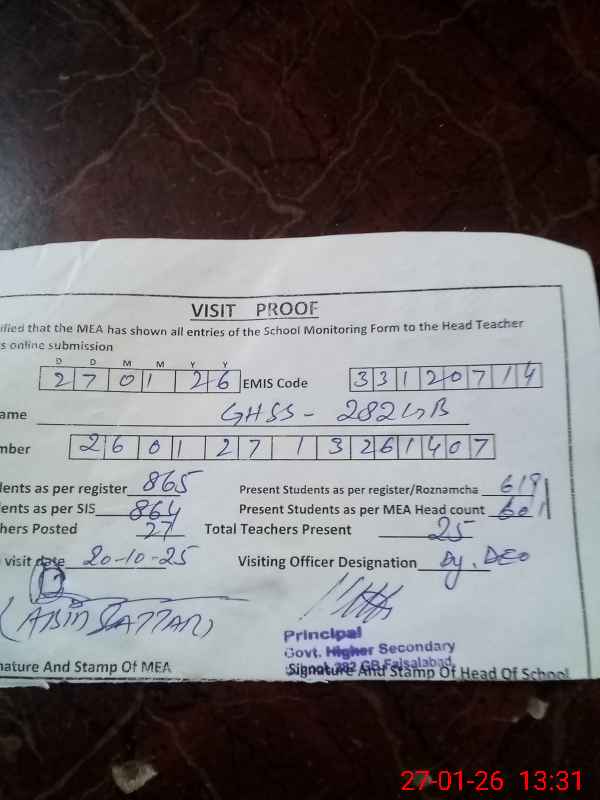 VISIT PROOF
ified that the MEA has shown all entries of the School Monitoring Form to the Head Teacher
s online submission
D D M M Y Y
27 01 26 EMIS Code 33120714
ame GHSS - 282 GB
mber 26012713261407
ents as per register 865 Present Students as per register/Roznamcha 619
ents as per SIS 864 Present Students as per MEA Head count 601
hers Posted 27 Total Teachers Present 25
visit date 20-10-25 Visiting Officer Designation Dy. DEO
(ABID SATTAR)
Principal
Govt. Higher Secondary
282 GB Faisalabad
nature And Stamp Of MEA Signature And Stamp Of Head Of School
27-01-26 13:31